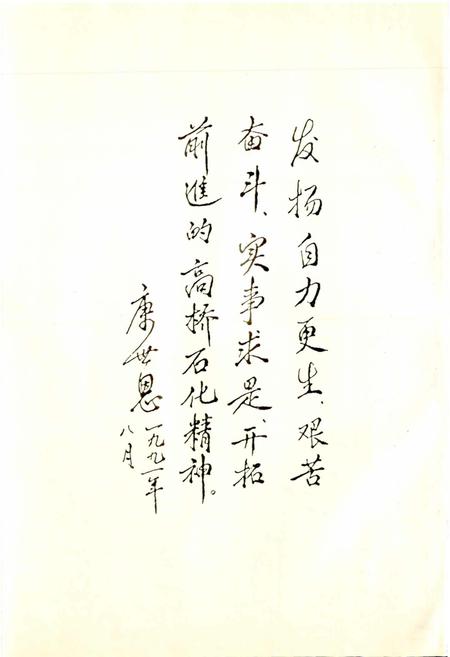 发扬自力更生、艰苦
奋斗、实事求是、开拓
前進的高桥石化精神。
康世恩一九九一年
八月